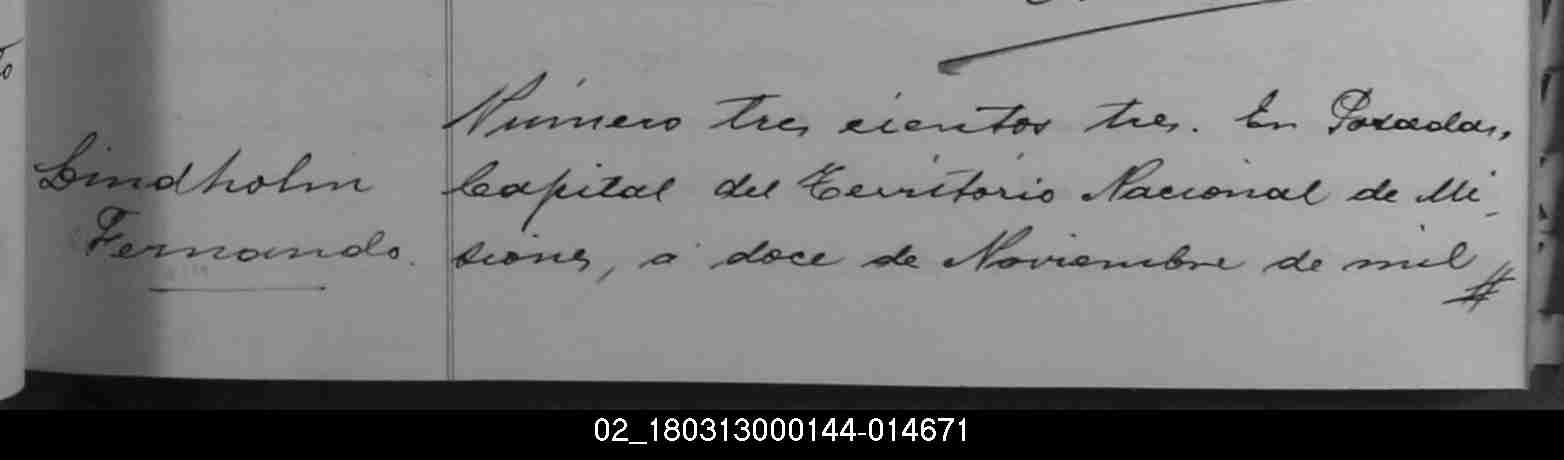 Número tres cientos tres. En Posadas,
Lindholm
Capital del Territorio Nacional de Mi-
Fernando.
siones, á doce de Noviembre de mil
02_180313000144-014671